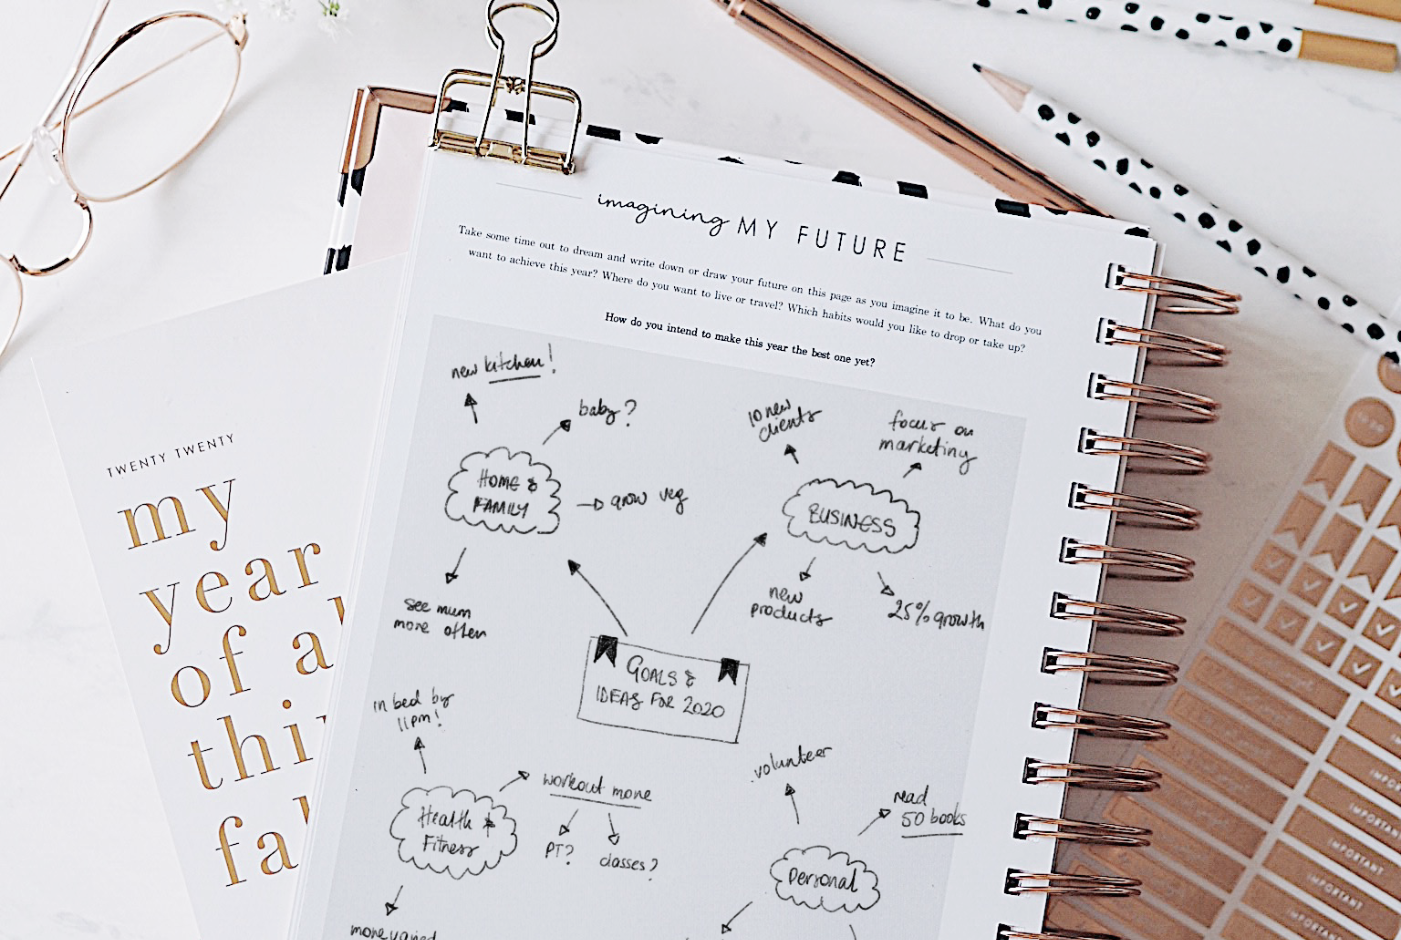 imagining MY FUTURE
Take some time out to dream and write down or draw your future on this page as you imagine it to be. What do you
want to achieve this year? Where do you want to live or travel? Which habits would you like to drop or take up?
How do you intend to make this year the best one yet?
new kitchen!
baby?
HOME &
FAMILY
grow veg
see mum
more often
10 new
clients
focus on
marketing
BUSINESS
new
products
25% growth
GOALS &
IDEAS FOR 2020
in bed by
11pm!
workout more
PT?
classes?
Health &
Fitness
more varied
volunteer
read
50 books
Personal
TWENTY TWENTY
my
year
of a
thi
fa
TO DO
IMPORTANT
IMPORTANT
IMPORTANT
IMPORTANT
IMPORTANT